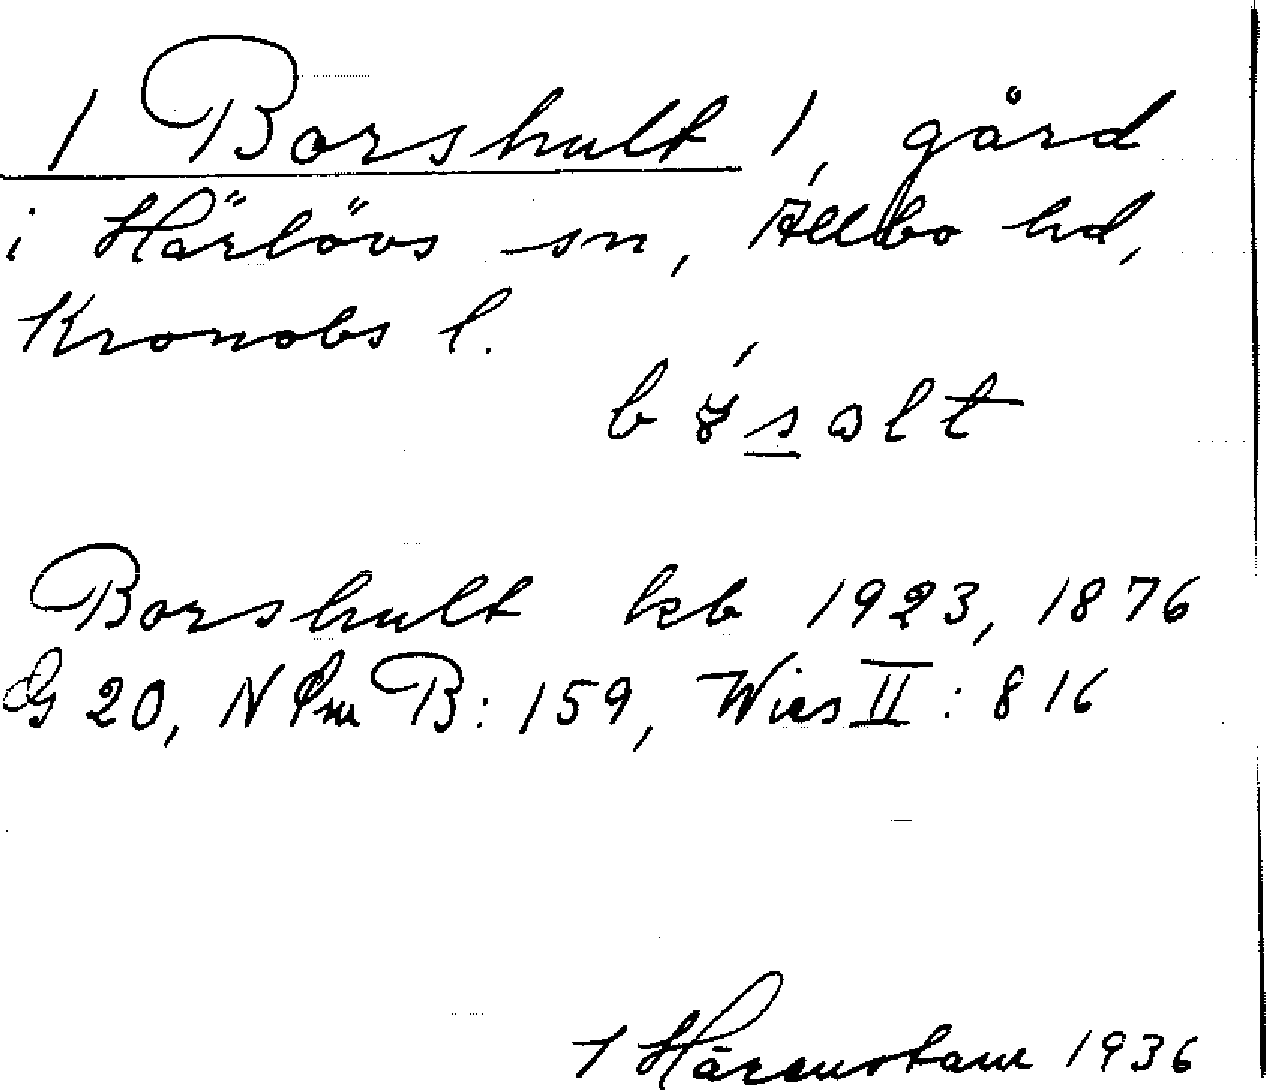 / Borshult /, gård
i Härlövs sn, Allbo hd,
Kronobs l.
Borshult kb 1923, 1876
G 20, N Sm B: 159, Wies II: 816
1936